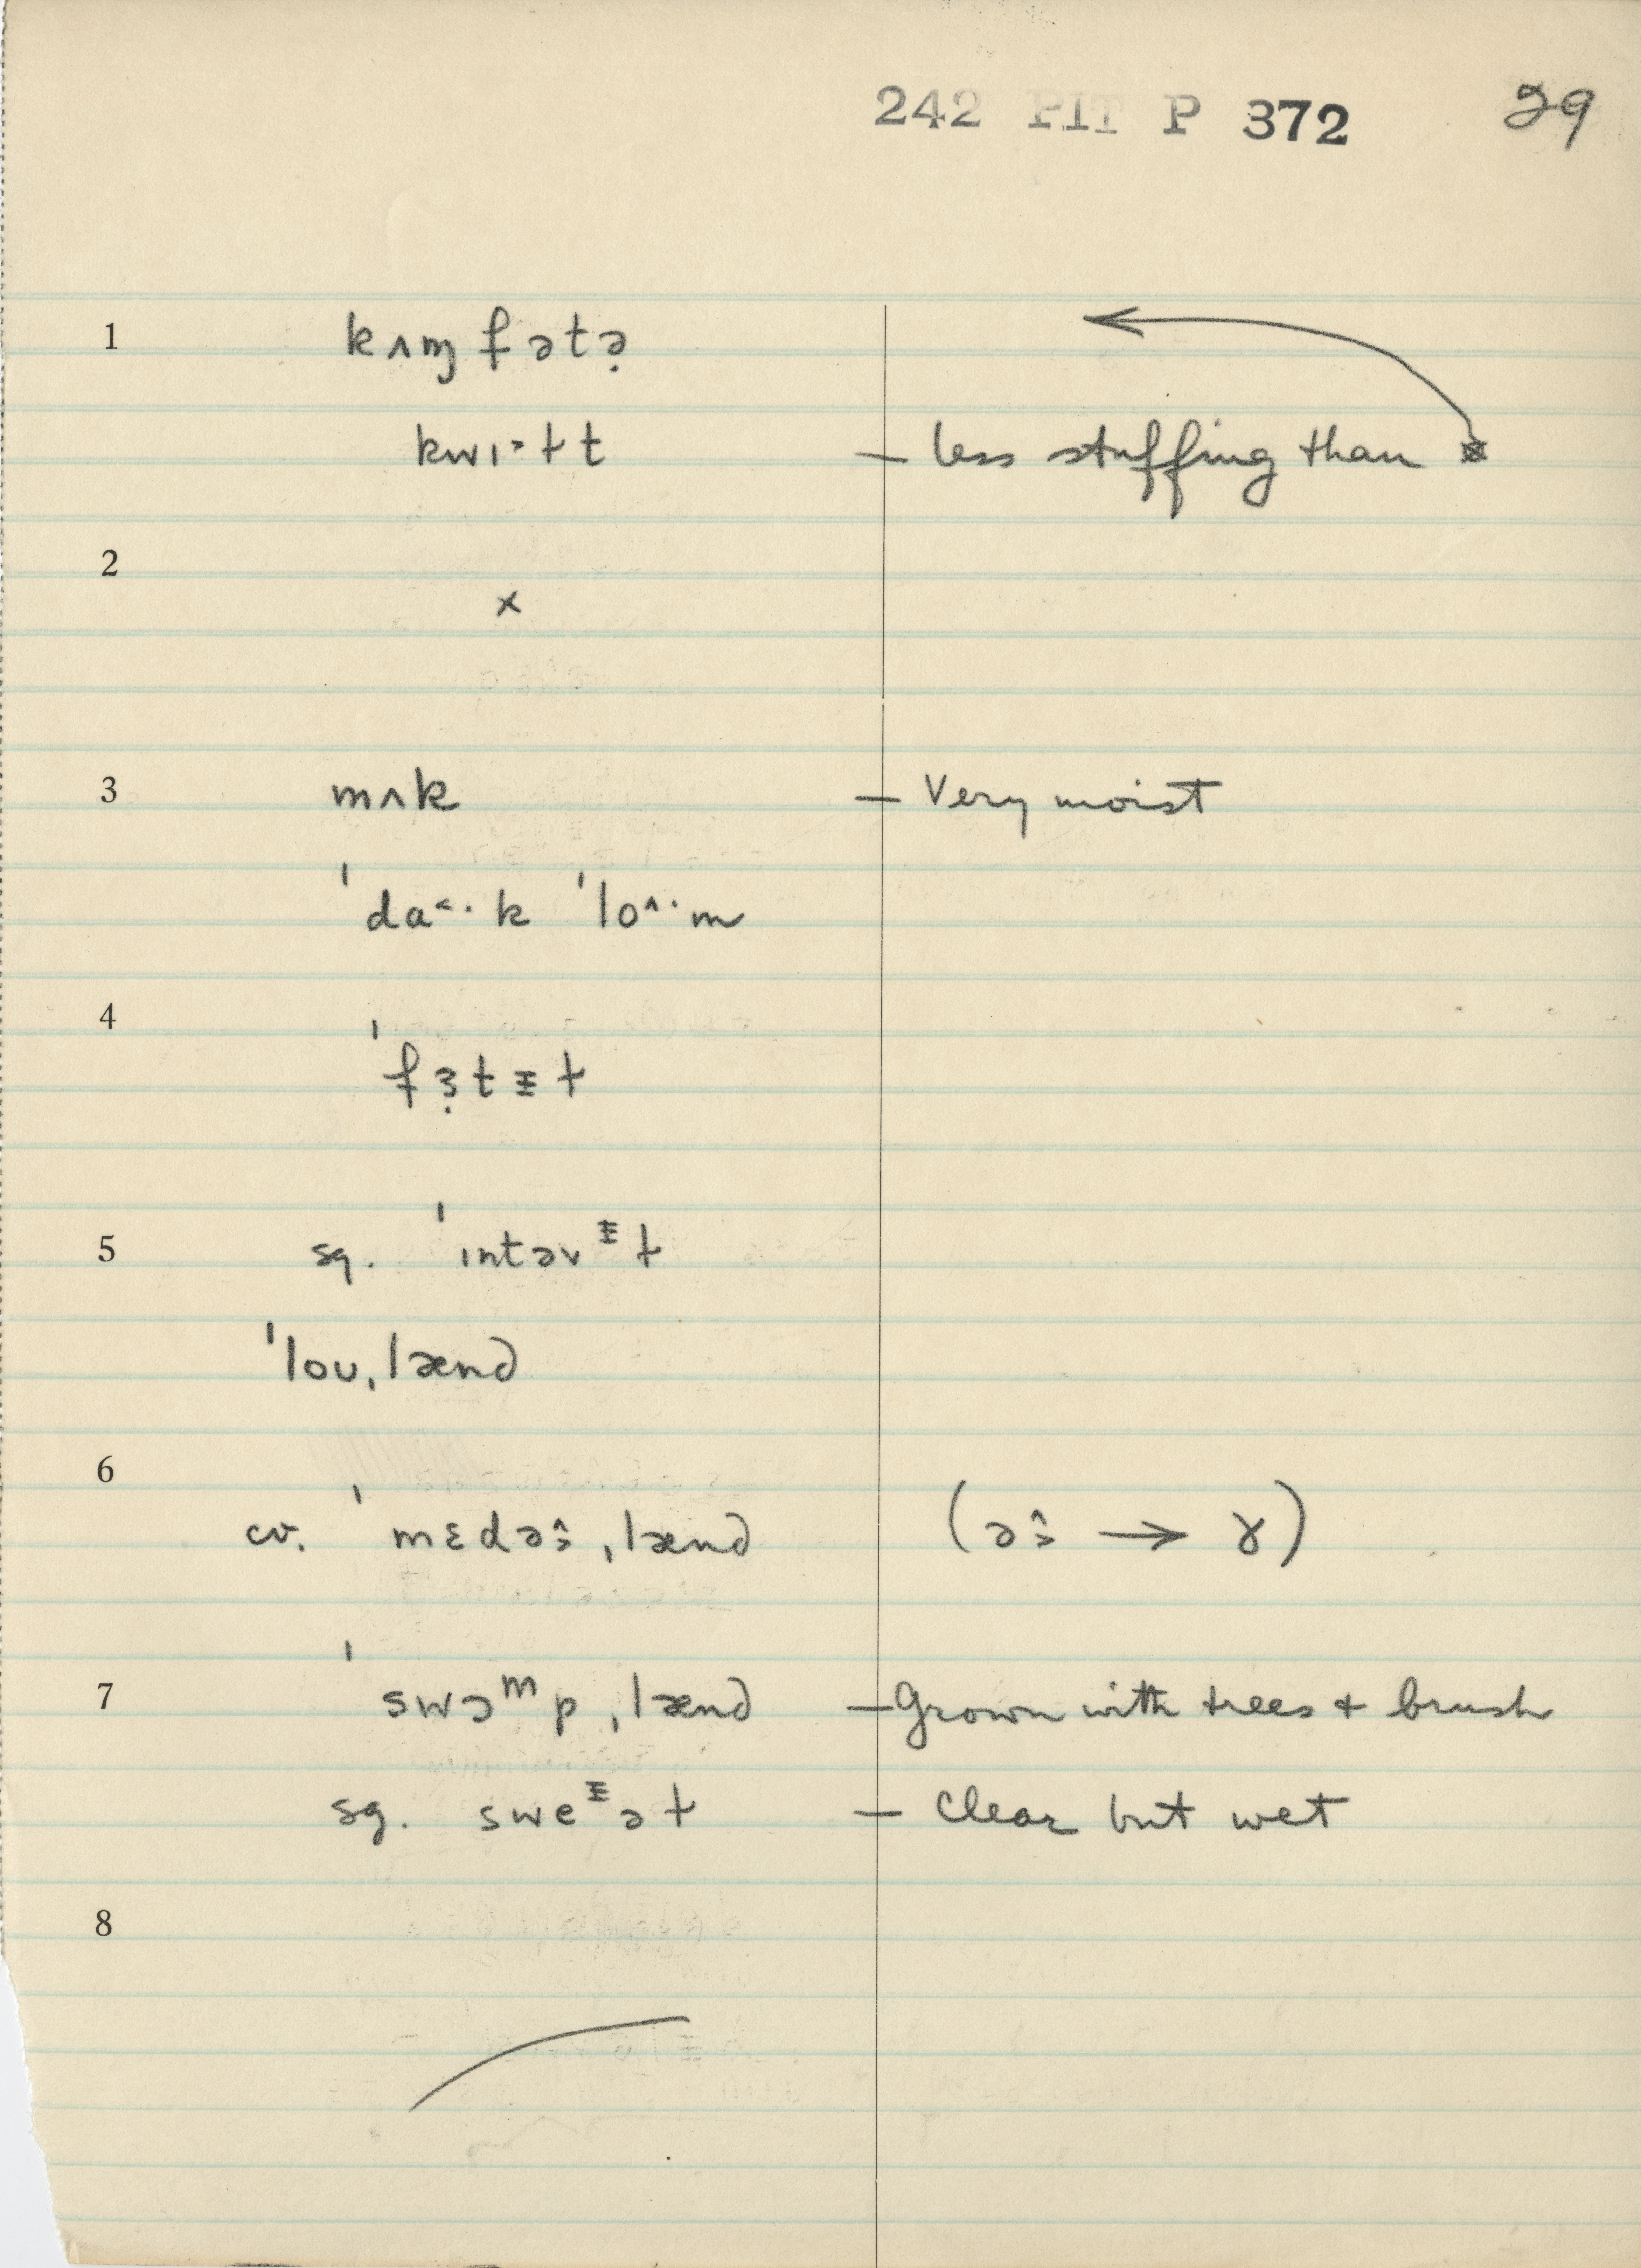 242 PIT P 372 29
1 kʌɱfətə̣
kwɪ˃ɫt — less stuffing than
2 ×
3 mʌk — Very moist
ˈda˂·k ˈlo^·m
4 ˈfɜ̣tᵻɫ
5 sg. ˈɪntəvᵻɫ
ˈloʊˌlænd
6 cv. ˈmɛdəˌlænd ( → ɤ)
7 ˈswɔᵐpˌlænd — Grown with trees + brush
sg. sweᵻəɫ — Clear but wet
8